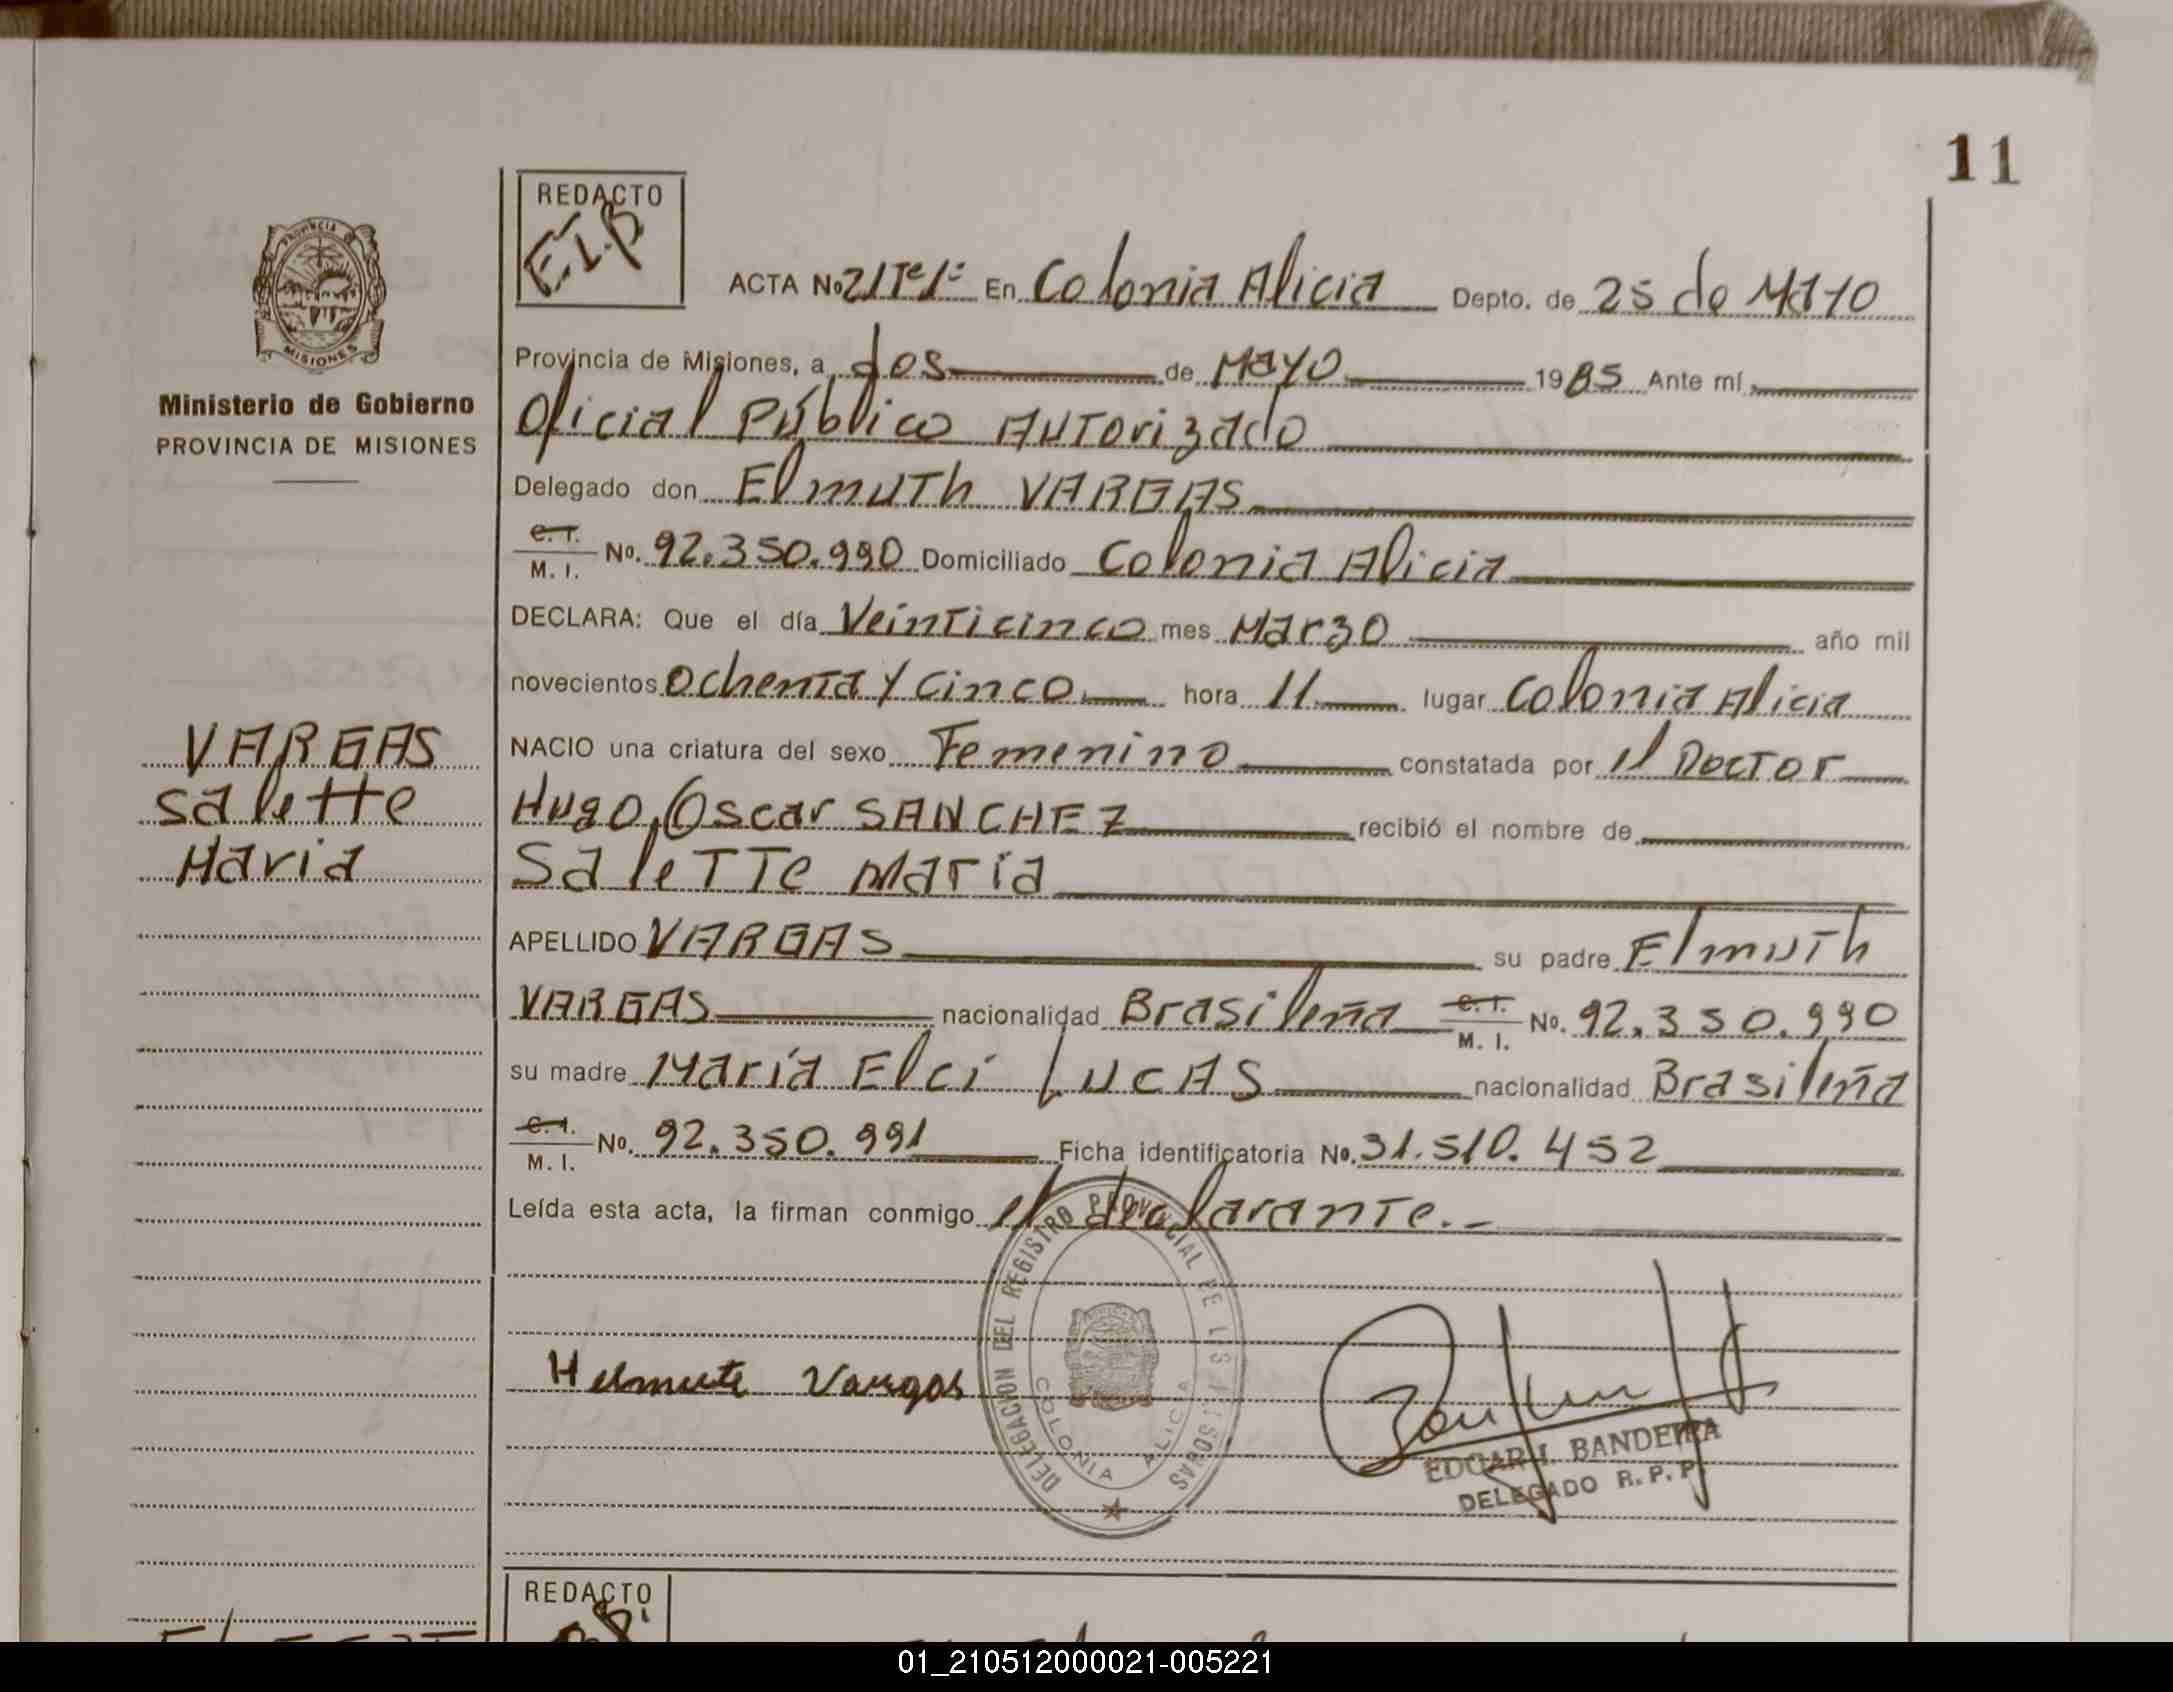 11
REDACTO
E.I.B
PROVINCIA DE
MISIONES
Ministerio de Gobierno
PROVINCIA DE MISIONES
ACTA Nº 21Tº1º En Colonia Alicia Depto. de 25 de MAYO
Provincia de Misiones, a dos de MAYO 1985 Ante mí
Oficial Público Autorizado
Delegado don Elmuth VARGAS
C. I.
M. I. Nº. 92.350.990 Domiciliado Colonia Alicia
DECLARA: Que el día Veinticinco mes Marzo año mil
novecientos Ochenta y Cinco hora 11 lugar Colonia Alicia
NACIO una criatura del sexo Femenino constatada por el Doctor
Hugo Oscar SANCHEZ recibió el nombre de
Salette María
APELLIDO VARGAS su padre Elmuth
VARGAS nacionalidad Brasileña C. I. M. I. Nº. 92.350.990
su madre María Elci LUCAS nacionalidad Brasileña
C. I.
M. I. Nº. 92.350.991 Ficha identificatoria Nº. 31.510.452
Leída esta acta, la firman conmigo el declarante.-
VARGAS
Salette
Maria
DELEGACION DEL REGISTRO PROVINCIAL DE LAS PERSONAS
COLONIA ALICIA
Helmute Vargas
EDGAR I. BANDEIRA
DELEGADO R. P. P.
REDACTO
01_210512000021-005221